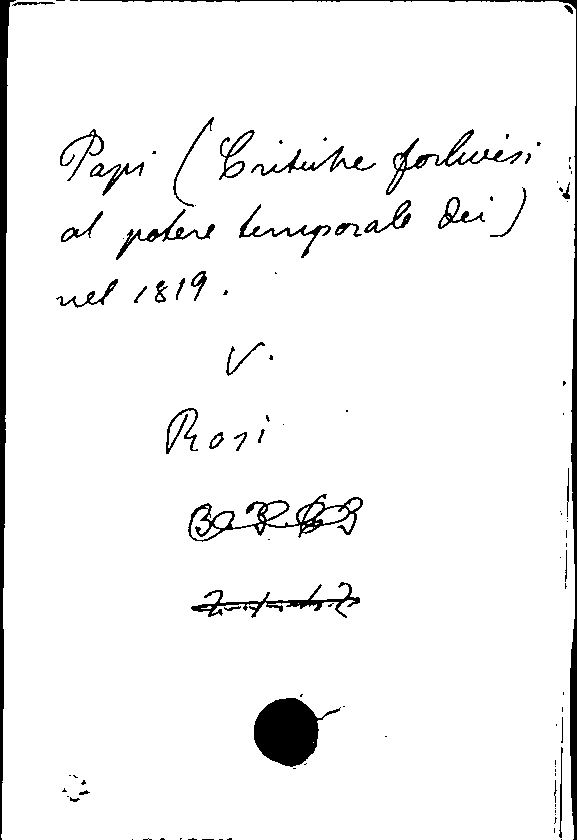 Papi (Critiche forlivesi
al potere temporale dei)
nel 1819.
V.
Rosi